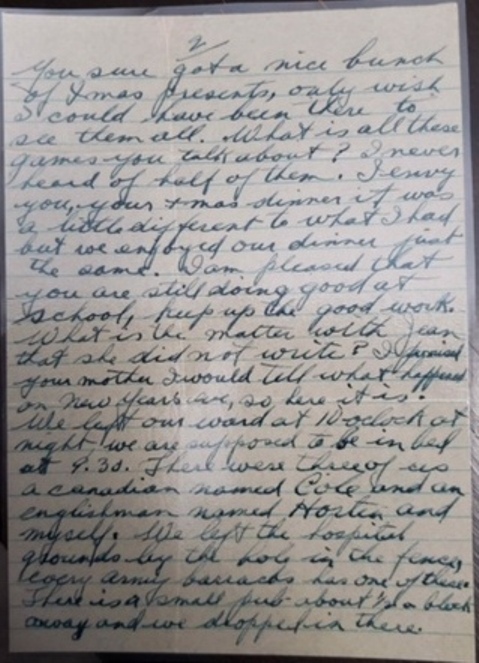 2
You sure got a nice bunch
of Xmas presents, only wish
I could have been there to
see them all. What is all these
games you talk about? I never
heard of half of them. I envy
you, your xmas dinner it was
a little different to what I had
but we enjoyed our dinner just
the same. I am pleased that
you are still doing good at
school, keep up the good work.
What is the matter with Jean
that she did not write? I promised
your mother I would tell what happened
on New Years eve, so here it is.
We left our ward at 10 oclock at
night we are supposed to be in bed
at 9.30. There were three of us
a canadian named Cole and an
englishman named Horten and
myself. We left the hospital
grounds by the hole in the fence,
every army barracks has one of these.
There is a small pub about 1/2 a block
away and we dropped in there.